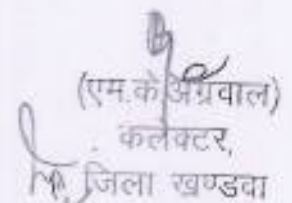 (एम.के.अग्रवाल)
कलेक्टर,
जिला खण्डवा